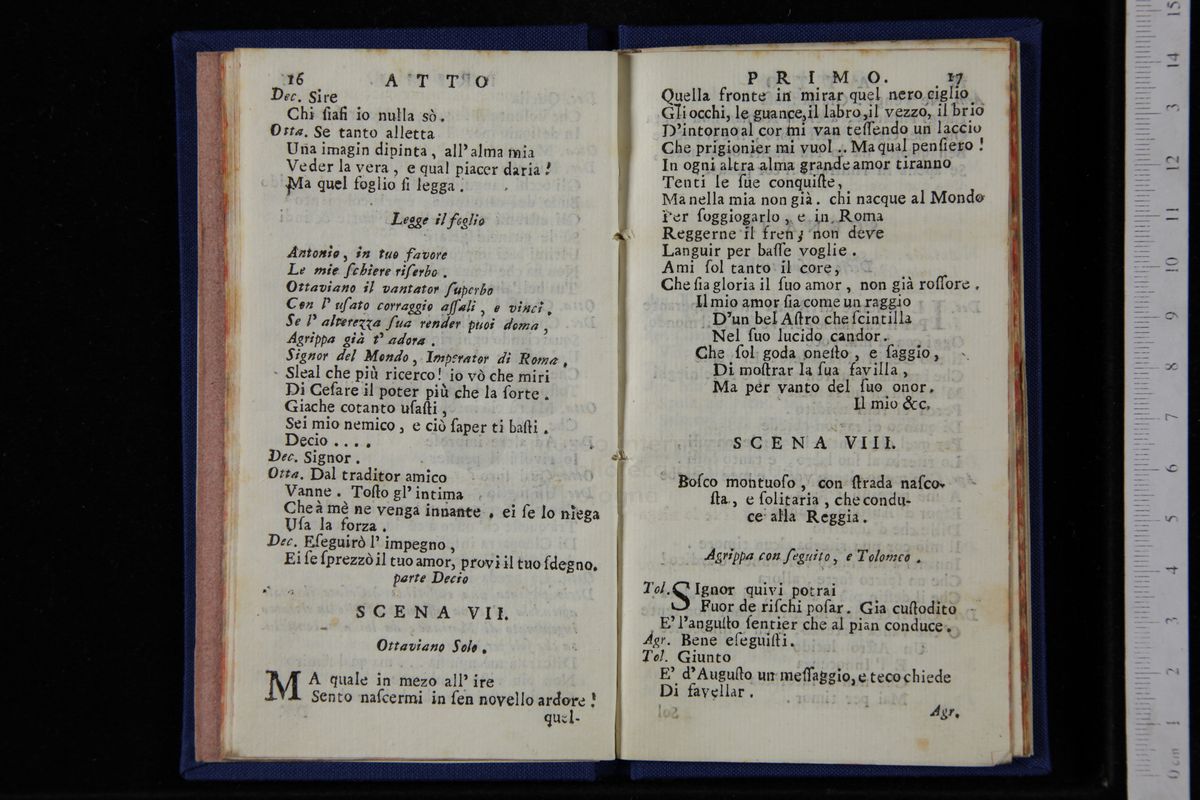 16 ATTO
Dec. Sire
Chi ſiaſi io nulla sò.
Otta. Se tanto alletta
Una imagin dipinta, all'alma mia
Veder la vera, e qual piacer daria!
Ma quel foglio ſi legga.
Legge il foglio
Antonio, in tuo favore
Le mie ſchiere riſerbo.
Ottaviano il vantator ſuperbo
Con l'uſato corraggio aſſali, e vinci,
Se l'alterezza ſua render puoi doma,
Agrippa già t'adora.
Signor del Mondo, Imperator di Roma,
Sleal che più ricerco! io vò che miri
Di Ceſare il poter più che la ſorte.
Giache cotanto uſaſti,
Sei mio nemico, e ciò ſaper ti baſti.
Decio....
Dec. Signor.
Otta. Dal traditor amico
Vanne. Toſto gl'intima
Che à mè ne venga innante, ei ſe lo niega
Uſa la forza.
Dec. Eſeguirò l'impegno,
Ei ſe ſprezzò il tuo amor, provi il tuo ſdegno.
parte Decio
SCENA VII.
Ottaviano Solo.
MA quale in mezo all'ire
Sento naſcermi in ſen novello ardore!
quel-
PRIMO. 17
Quella fronte in mirar quel nero ciglio
Gli occhi, le guance, il labro, il vezzo, il brio
D'intorno al cor mi van teſſendo un laccio
Che prigionier mi vuol.. Ma qual penſiero!
In ogni altra alma grande amor tiranno
Tenti le ſue conquiſte,
Ma nella mia non già. chi nacque al Mondo
Per ſoggiogarlo, e in Roma
Reggerne il fren; non deve
Languir per baſſe voglie.
Ami ſol tanto il core,
Che ſia gloria il ſuo amor, non già roſſore.
Il mio amor ſia come un raggio
D'un bel Aſtro che ſcintilla
Nel ſuo lucido candor.
Che ſol goda oneſto, e ſaggio,
Di moſtrar la ſua favilla,
Ma per vanto del ſuo onor.
Il mio &c.
SCENA VIII.
Boſco montuoſo, con ſtrada naſco-
ſta, e ſolitaria, che condu-
ce alla Reggia.
Agrippa con ſeguito, e Tolomeo.
Tol. SIgnor quivi potrai
Fuor de riſchi poſar. Gia cuſtodito
E' l'anguſto ſentier che al pian conduce.
Agr. Bene eſeguiſti.
Tol. Giunto
E' d'Auguſto un meſſaggio, e teco chiede
Di favellar.
Agr.
15
14
13
12
11
10
9
8
7
6
5
4
3
2
1
0 cm